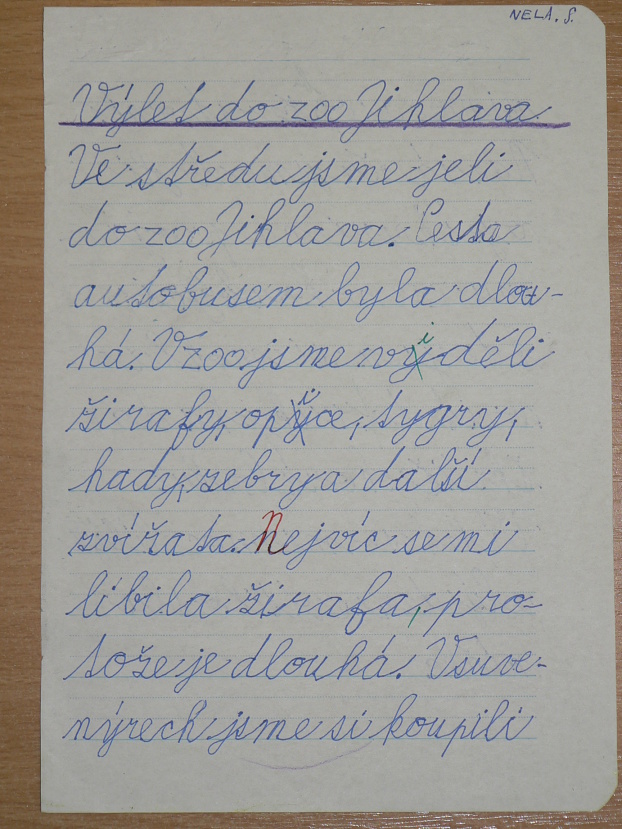 NELA. S.
Výlet do zoo Jihlava
Ve středu jsme jeli
do zoo Jihlava. Cesta
autobusem byla dlou-
há. V zoo jsme viděli
žirafy, opice, tygry,
hady, zebry a další
zvířata. Nejvíc se mi
líbila žirafa, pro-
tože je dlouhá. V suve-
nýrech jsme si koupili